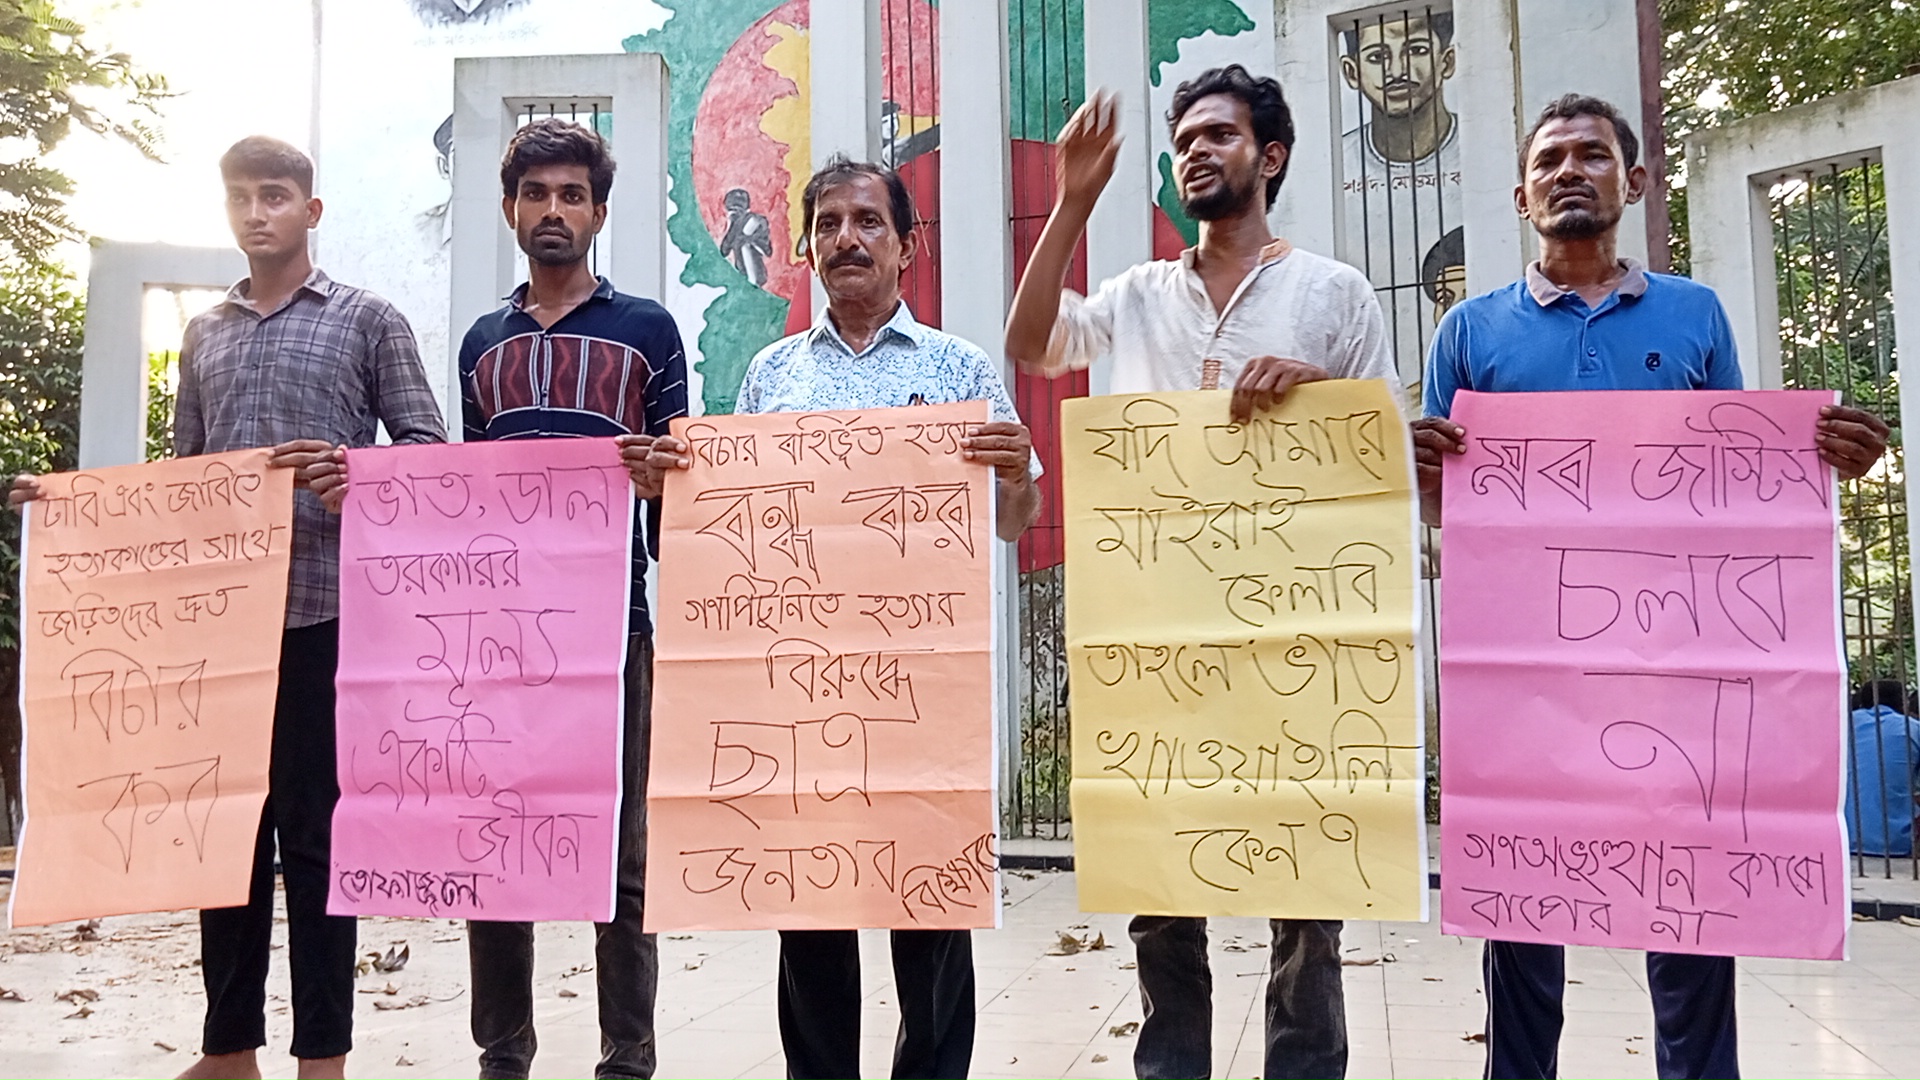 ঢাবি এবং জাবিতে
হত্যাকাণ্ডের সাথে
জড়িতদের দ্রুত
বিচার
কর
ভাত, ডাল
তরকারির
মূল্য
একটি
জীবন
"তোফাজ্জল"
বিচার বহির্ভূত হত্যা
বন্ধ কর
গণপিটুনিতে হত্যার
বিরুদ্ধে
ছাত্র
জনতার বিক্ষোভ
যদি আমারে
মাইরাই
ফেলবি
তাহলে "ভাত"
খাওয়াইলি
কেন?
মব জাস্টিস
চলবে
না
গণঅভ্যুত্থান কারো
বাপের না